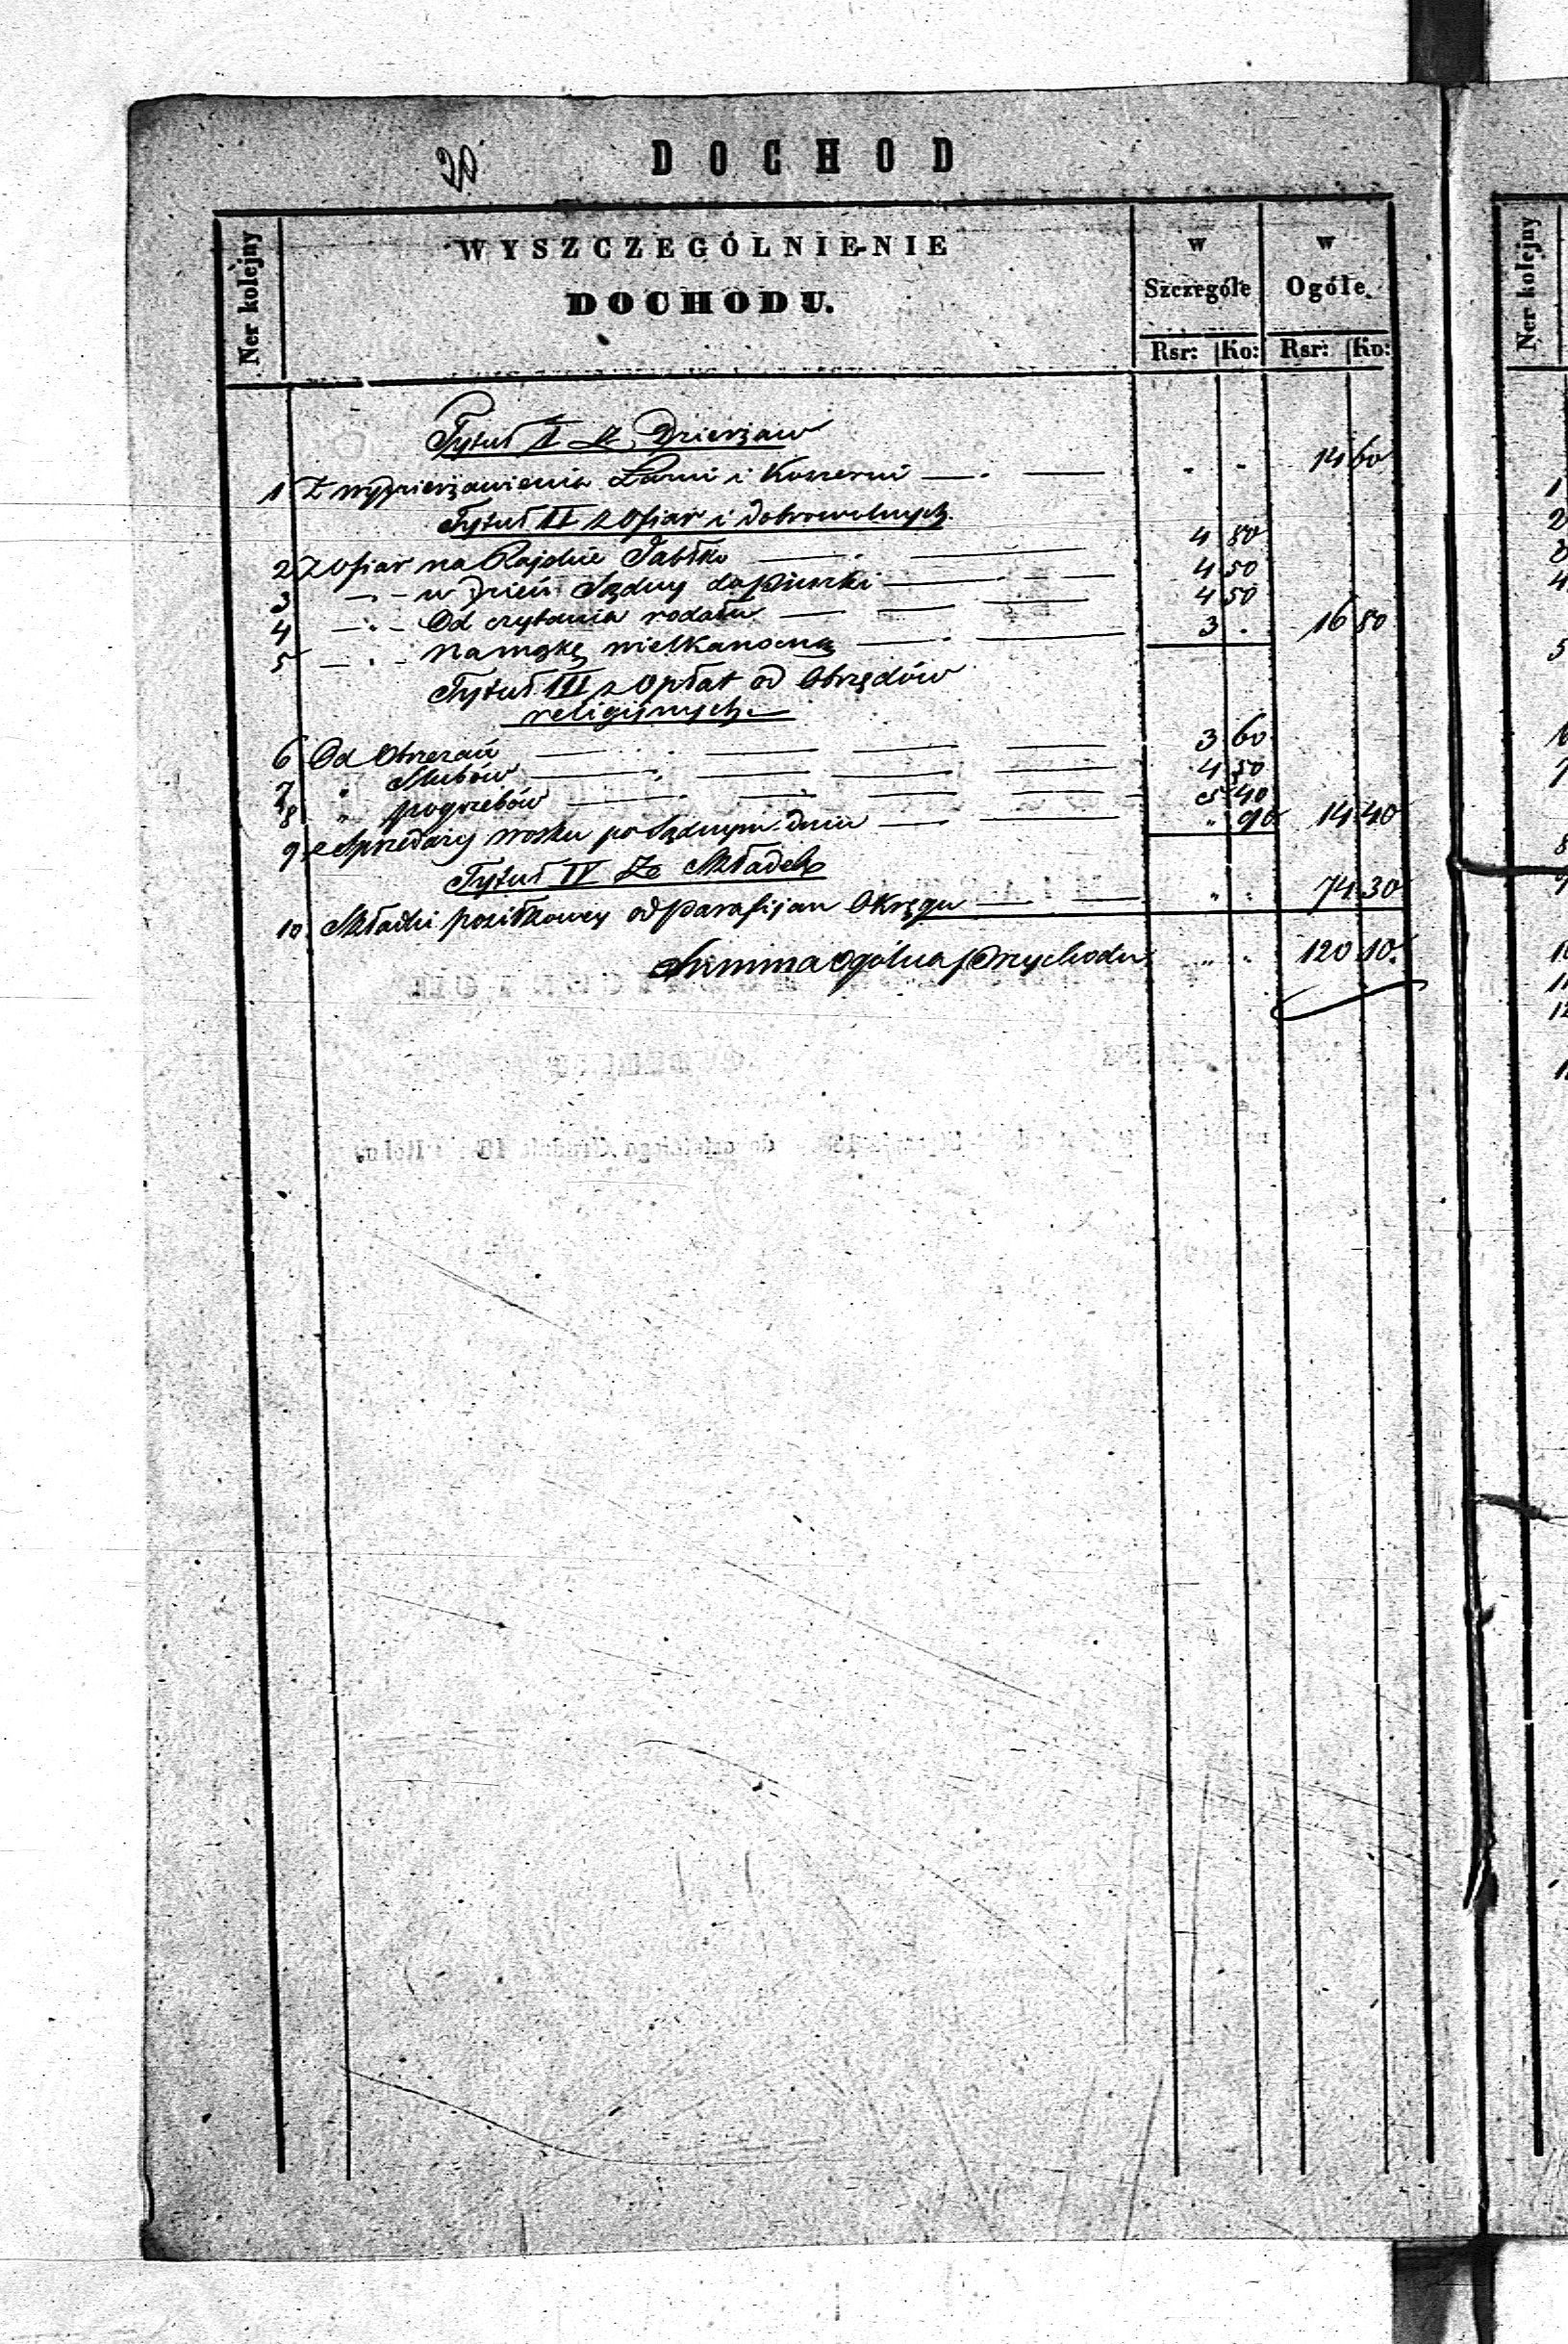 20
DOCHOD
Ner kolejny
WYSZCZEGÓLNIENIE
DOCHODU.
w Szczególe
w Ogóle.
Rsr: Ko: Rsr: Ko:
Tytuł I Z Dzierżaw
1 Z wydzierżawienia Łazni i Koszerni 14 60
Tytuł II z Ofiar i dobrowolnych
2 Z Ofiar na Rajskie Jabłko 4 80
3 w dzień Sądny do puszki 4 50
4 Od czytania rodału 4 50
5 na mąkę wielkanocną 3 . 16 80
Tytuł III z Opłat od Obrzędów
religijnych
6 Od Obrzezań 3 60
7 " Slubów 4 50
8 " pogrzebów 5 40
9 Sprzedaży wosku po Sądnym dniu " 90 14 40
Tytuł IV Ze Składek
10 Składki posiłkowey od parafijan Okręgu " . 74 30
Summa ogólna przychodu " . 120 10.
Ner kolejny